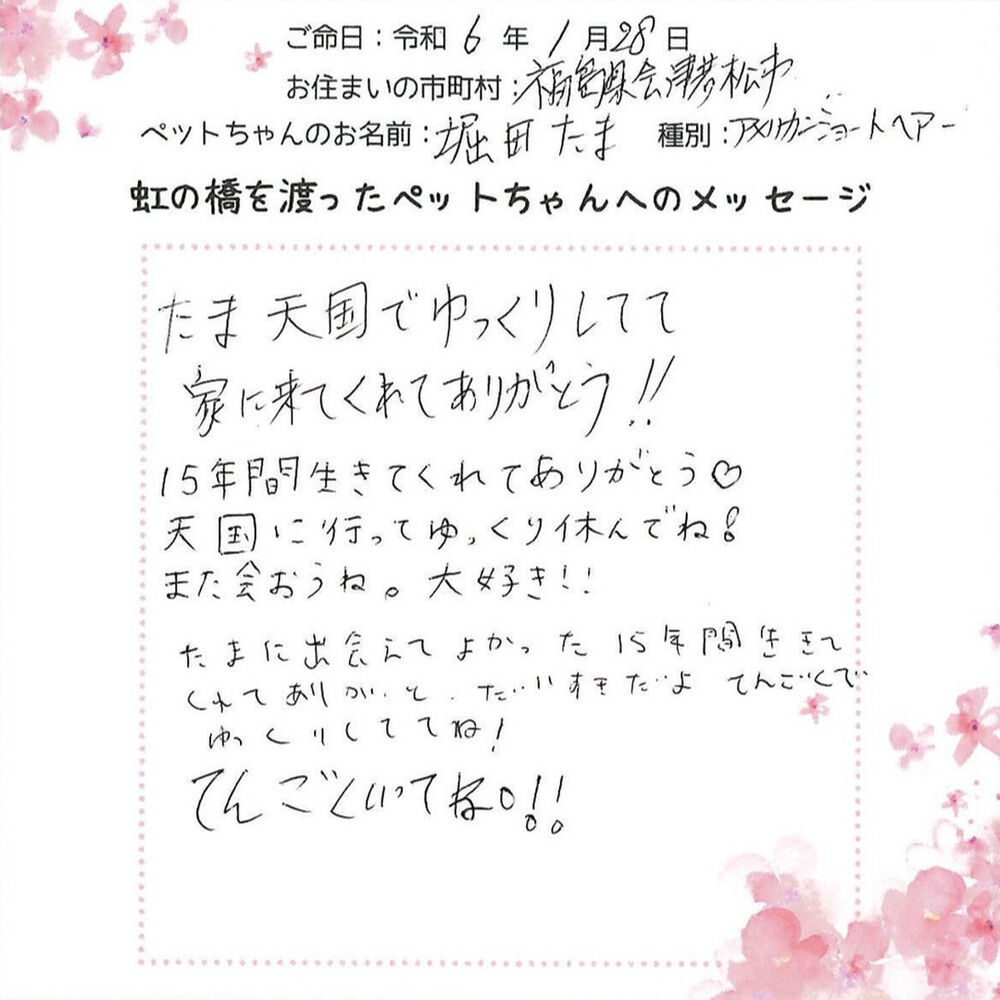 ご命日：令和 6 年 1 月 28 日
お住まいの市町村：福島県会津若松市
ペットちゃんのお名前：堀田たま 種別：アメリカンショートヘアー
虹の橋を渡ったペットちゃんへのメッセージ
たま 天国でゆっくりしてて
家に来てくれてありがとう!!
15年間生きてくれてありがとう♡
天国に行ってゆっくり休んでね!
また会おうね。大好き!!
たまに出会えてよかった 15年間生きて
くれてありがと、だいすきだよ てんごくで
ゆっくりしててね!
てんごくいってねo!!